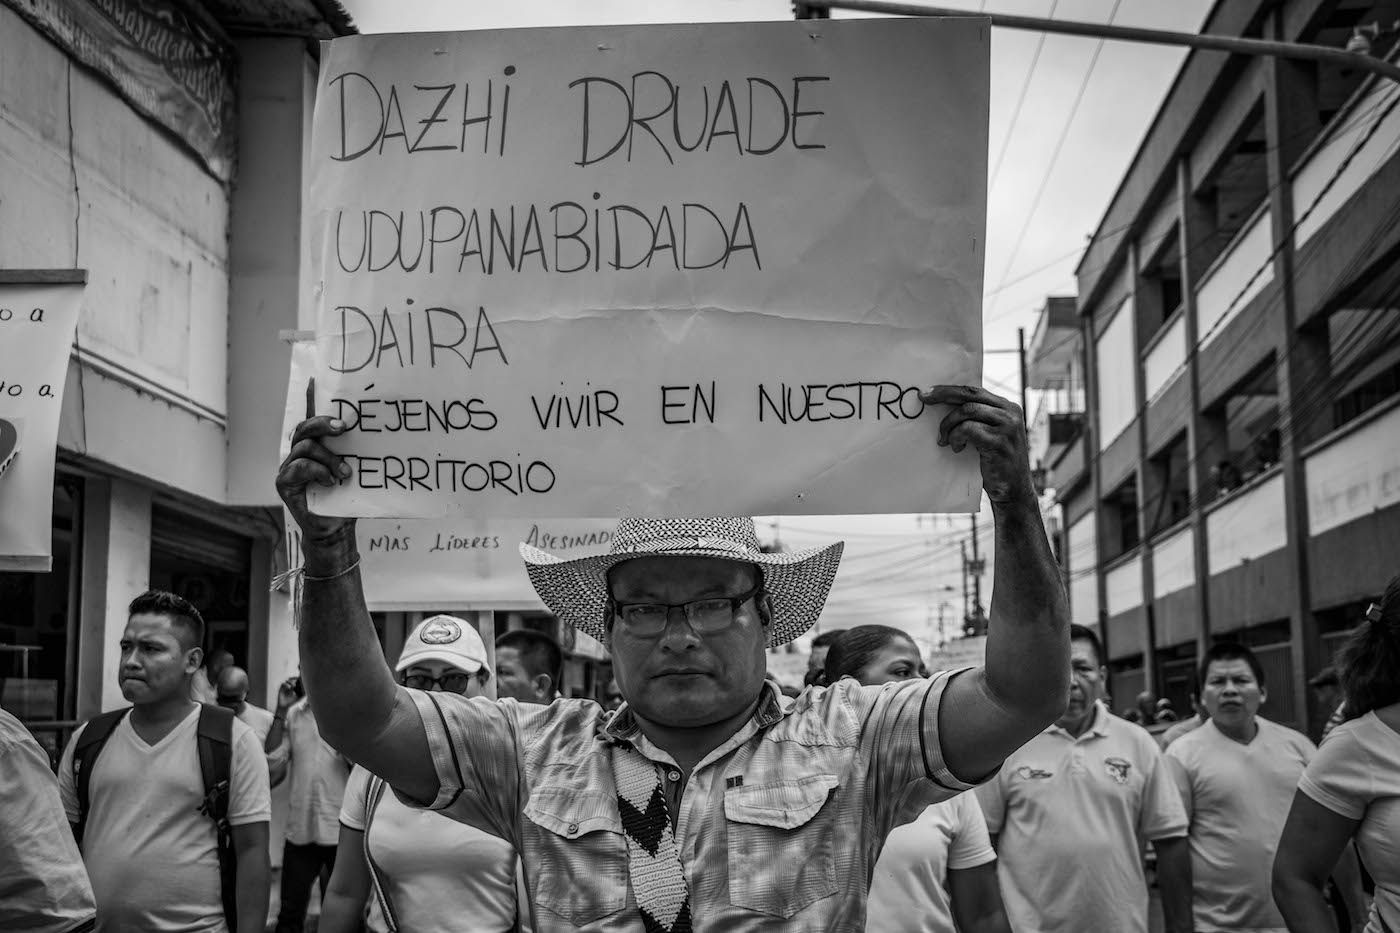 DAZHI DRUADE
UDUPANABIDADA
DAIRA
DÉJENOS VIVIR EN NUESTRO
TERRITORIO
MÁS LÍDERES ASESINAD
o a
to a,